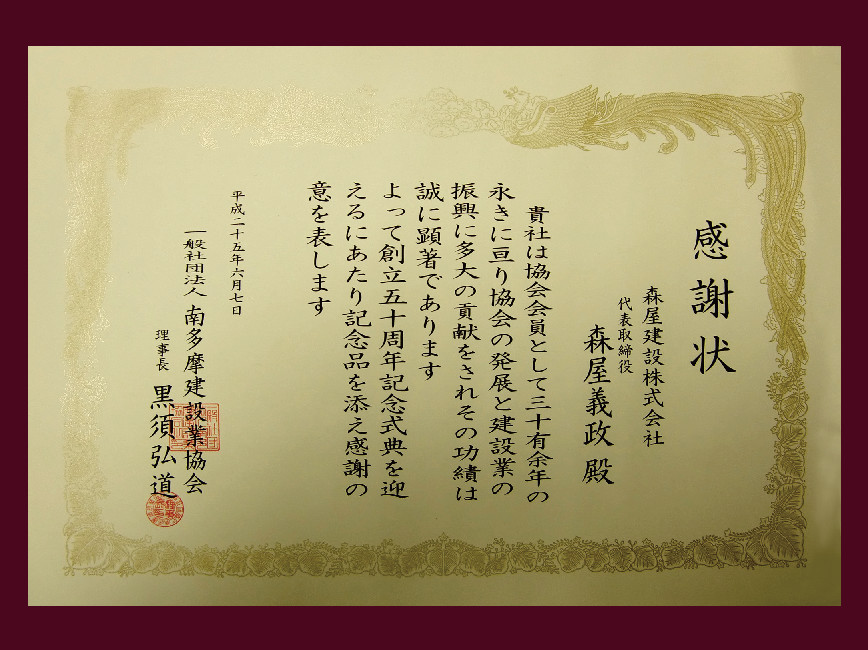 感謝状
森屋建設株式会社
代表取締役
森屋義政 殿
貴社は協会会員として三十有余年の
永きに亘り協会の発展と建設業の
振興に多大の貢献をされその功績は
誠に顕著であります
よって創立五十周年記念式典を迎
えるにあたり記念品を添え感謝の
意を表します
平成二十五年六月七日
一般社団法人 南多摩建設業協会
理事長 黒須弘道